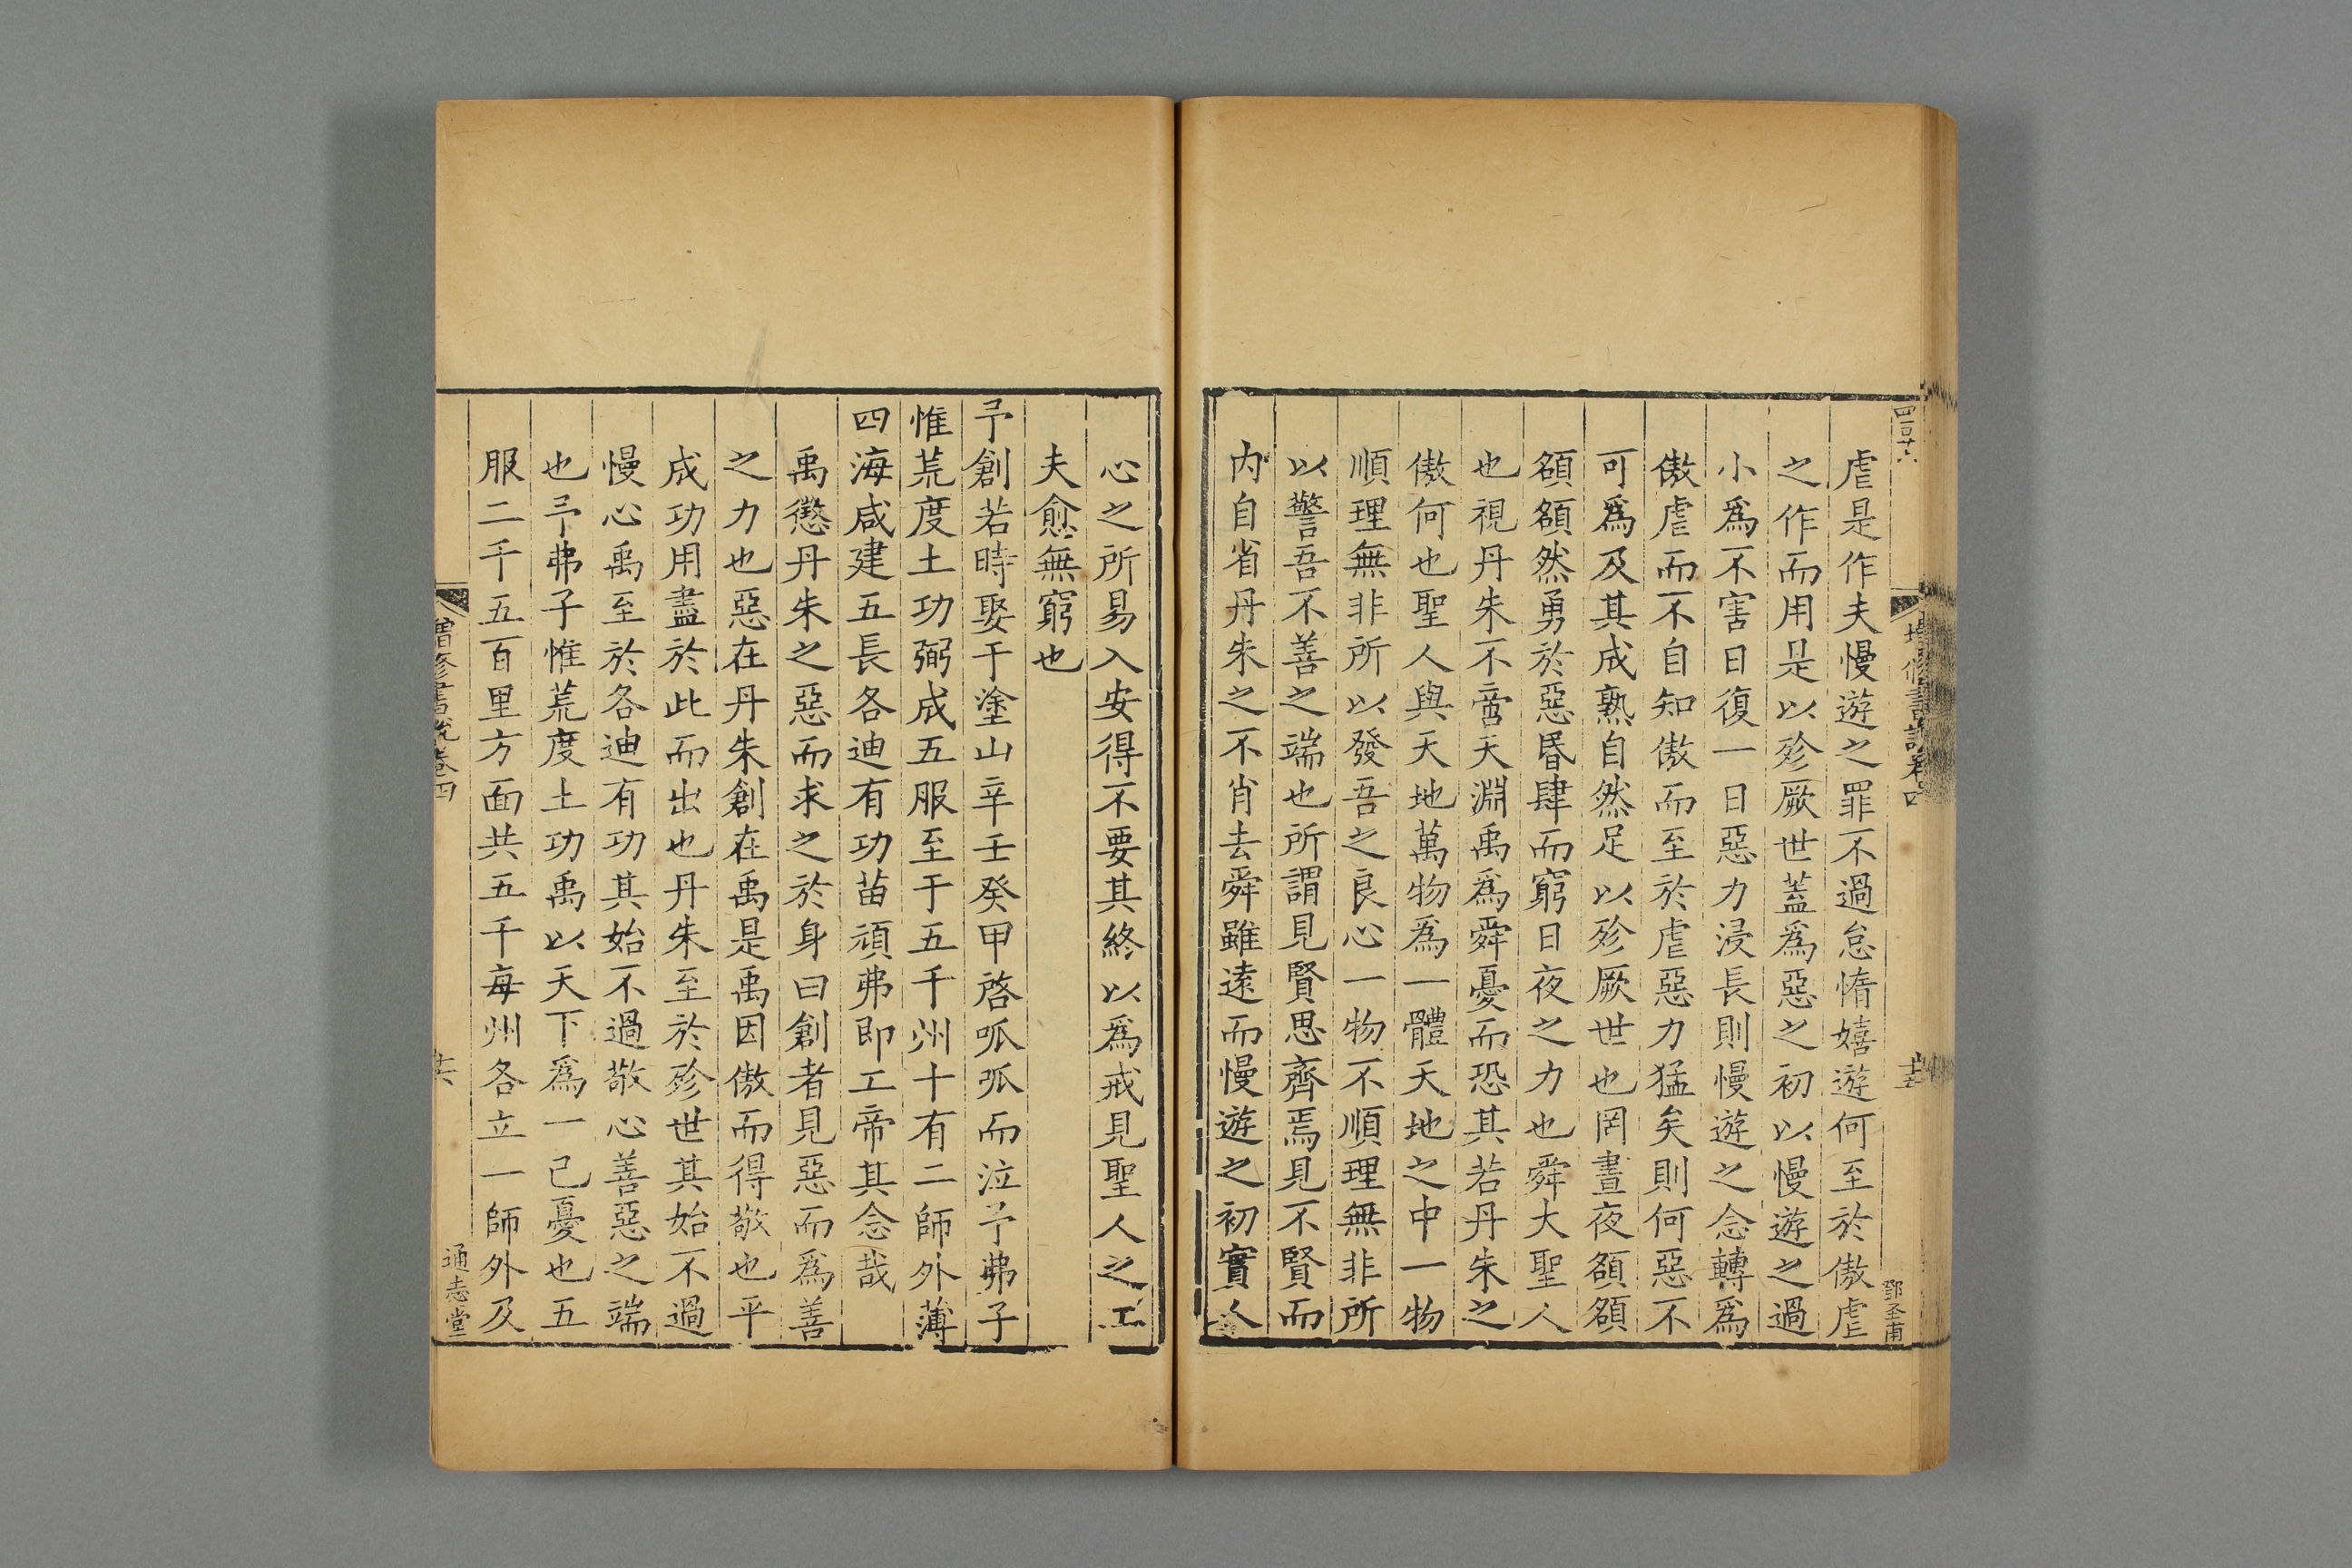 四百廿六
增修書說卷四
十五
鄧圣甫
虐是作夫慢遊之罪不過怠惰嬉遊何至於傲虐
之作而用是以殄厥世蓋爲惡之初以慢遊之過
小爲不害日復一日惡力浸長則慢遊之念轉爲
傲虐而不自知傲而至於虐惡力猛矣則何惡不
可爲及其成熟自然足以殄厥世也罔晝夜頟頟
頟頟然勇於惡昬肆而窮日夜之力也舜大聖人
也視丹朱不啻天淵禹爲舜憂而恐其若丹朱之
傲何也聖人與天地萬物爲一體天地之中一物
順理無非所以發吾之良心一物不順理無非所
以警吾不善之端也所謂見賢思齊焉見不賢而
内自省丹朱之不肖去舜雖遠而慢遊之初實人
心之所易入安得不要其終以爲戒見聖人之工
夫愈無窮也
予創若時娶于塗山辛壬癸甲啓呱呱而泣予弗子
惟荒度土功弼成五服至于五千州十有二師外薄
四海咸建五長各迪有功苗頑弗即工帝其念哉
禹懲丹朱之惡而求之於身曰創者見惡而爲善
之力也惡在丹朱創在禹是禹因傲而得敬也平
成功用盡於此而出也丹朱至於殄世其始不過
慢心禹至於各迪有功其始不過敬心善惡之端
也予弗子惟荒度土功禹以天下爲一己憂也五
服二千五百里方面共五千每州各立一師外及
增修書說卷四
十六
通志堂